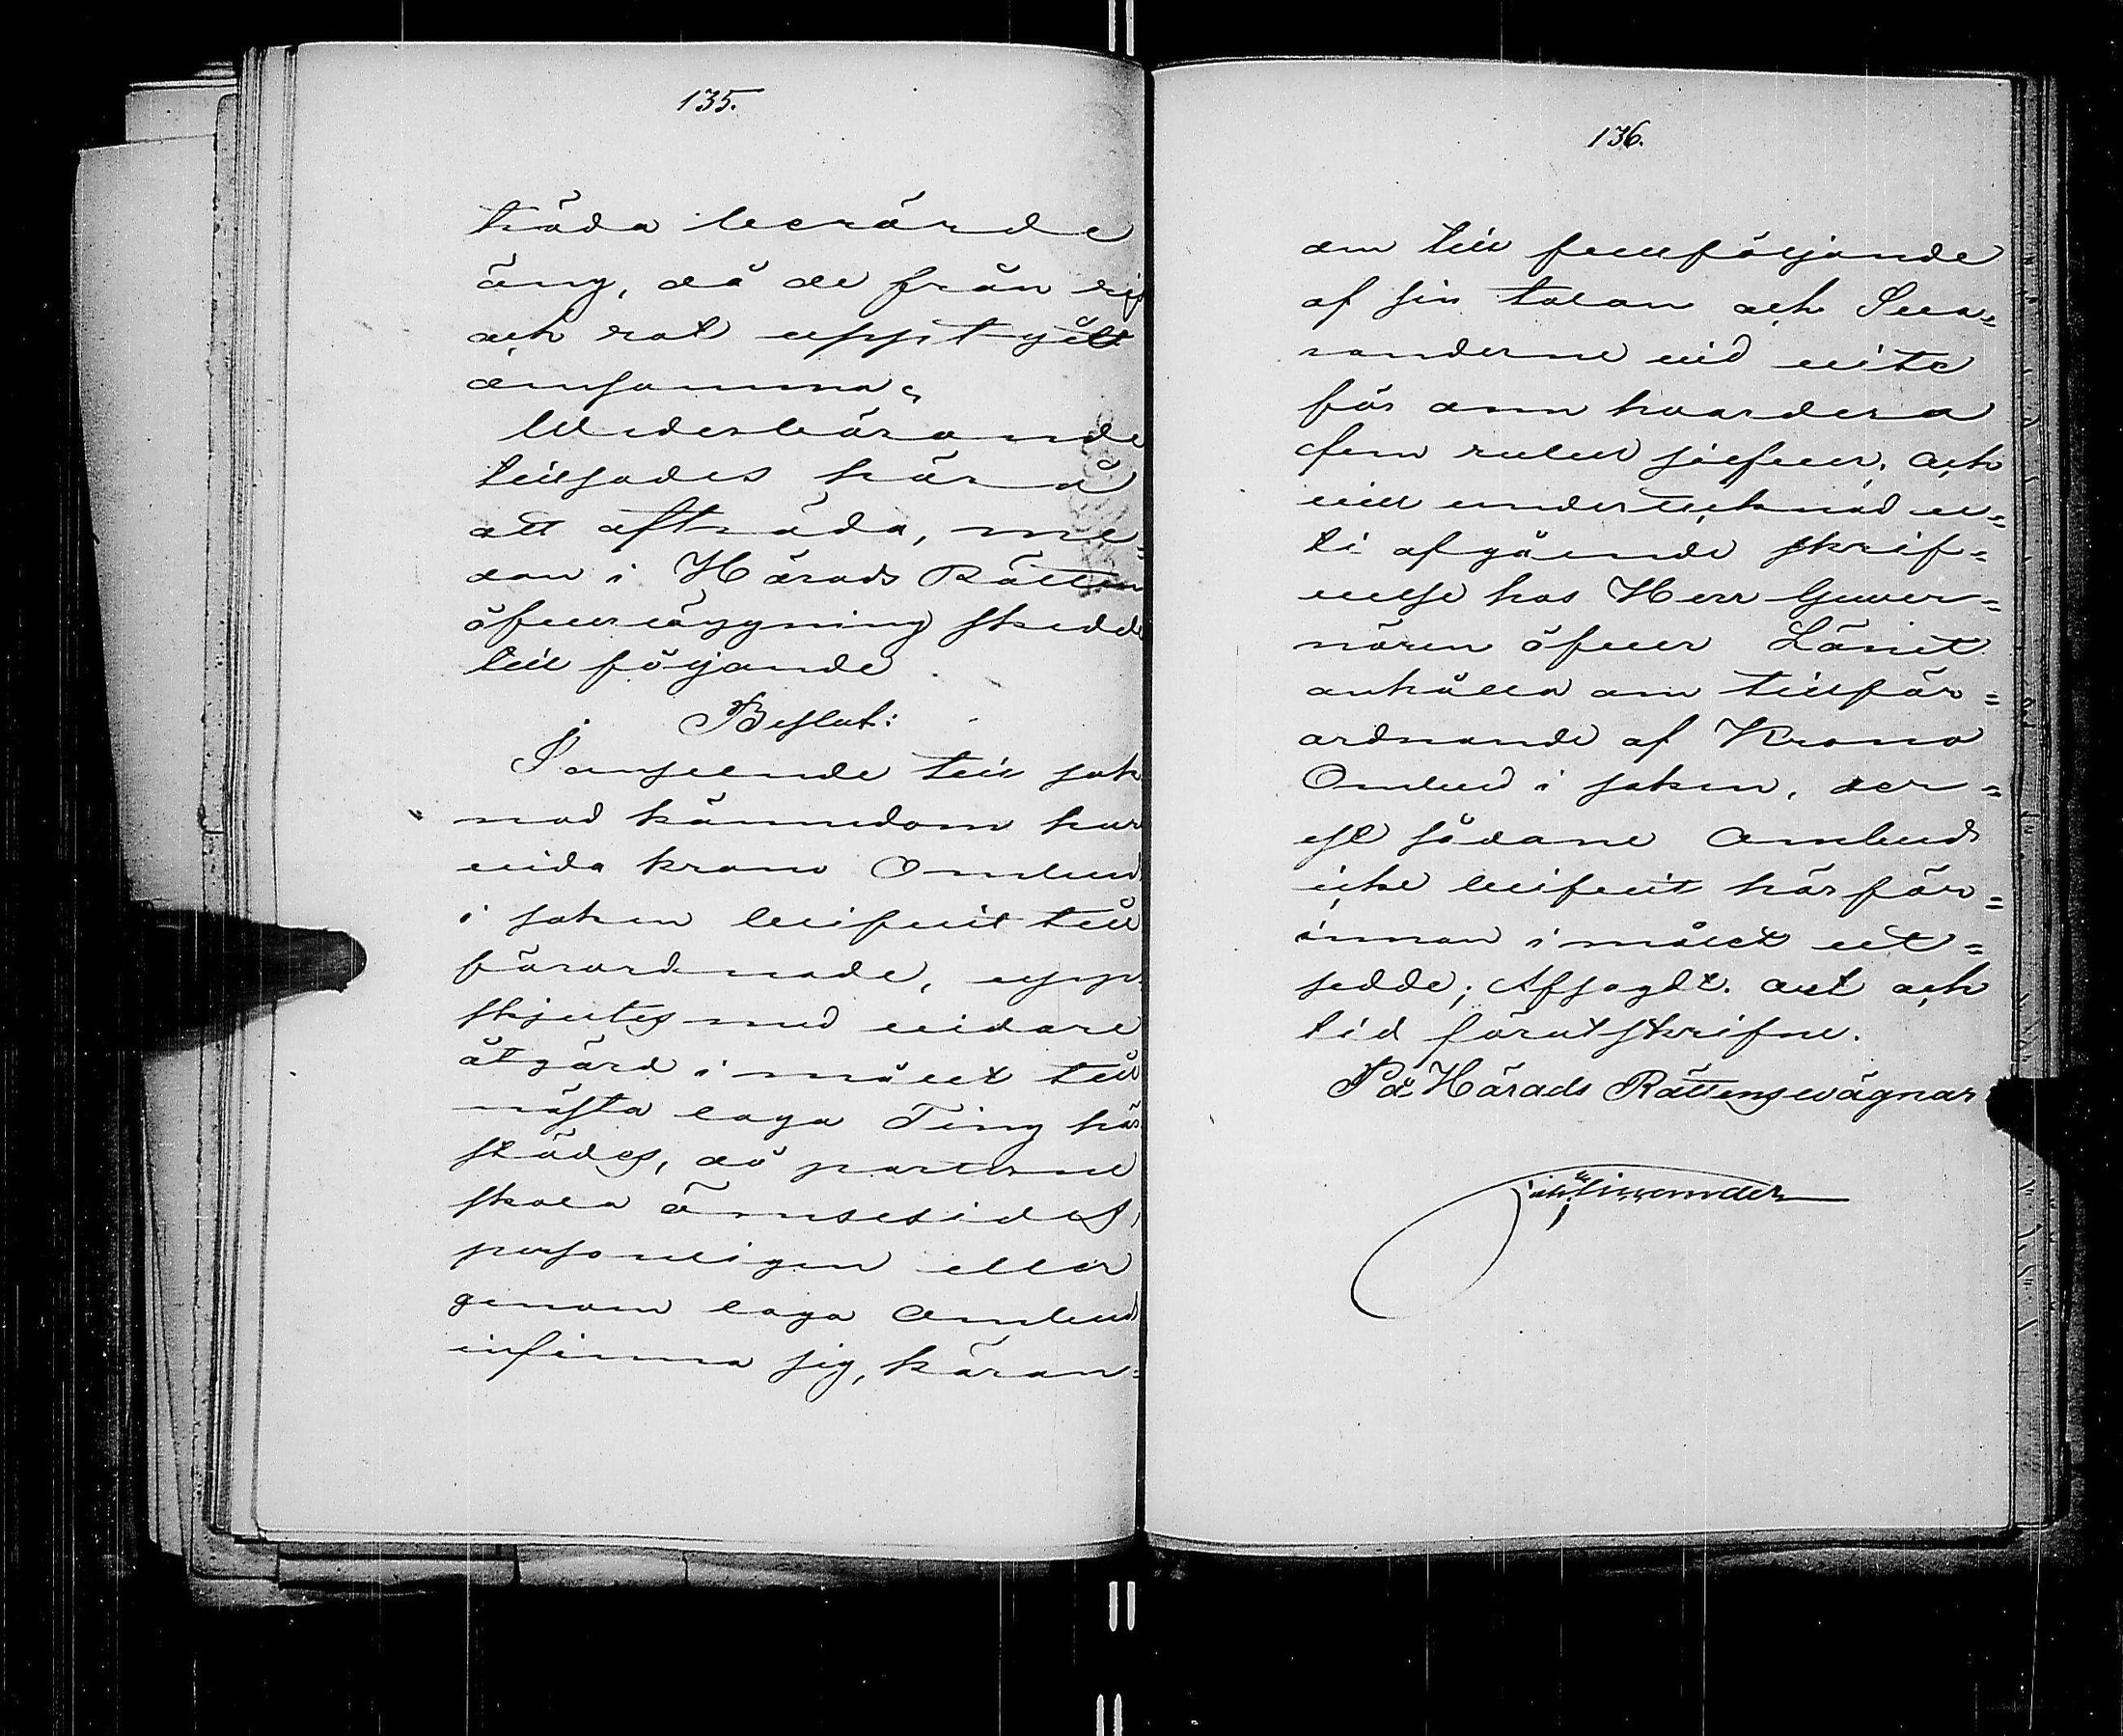 135.
träda berörde
äng, då de från ris
och rot upptagit
densamma.
Wederbörande
tillsades härå
att afträda, me=
dan i Härads Rätten
öfvervägning skedde
till följande
Beslut:
I anseende till sak
nad kännedom hur
uvida krono Ombud
i saken blifvit till
förordnade, upp
skjutes med vidare
åtgärd i målet till
nästa laga Ting här
städes, då parterne
skola ömsesides,
personligen eller
genom laga Ombud
infinna sig, käran=
136.
den till fullföljande
af sin talan och Sva=
randerne vid vite
för dem hvardera
fem rubel silfver, och
vill undertecknad u=
ti afgående skrif=
velse hos Herr Guver=
nören öfver Länet
anhålla om tillför=
ordnande af Krono
Ombud i saken, der=
est sådane Ombud
icke blifvit härför=
innan i målet ut=
sedde; Afsagdt. Ort och
tid förutskrifne.
På Härads Rättens wägnar